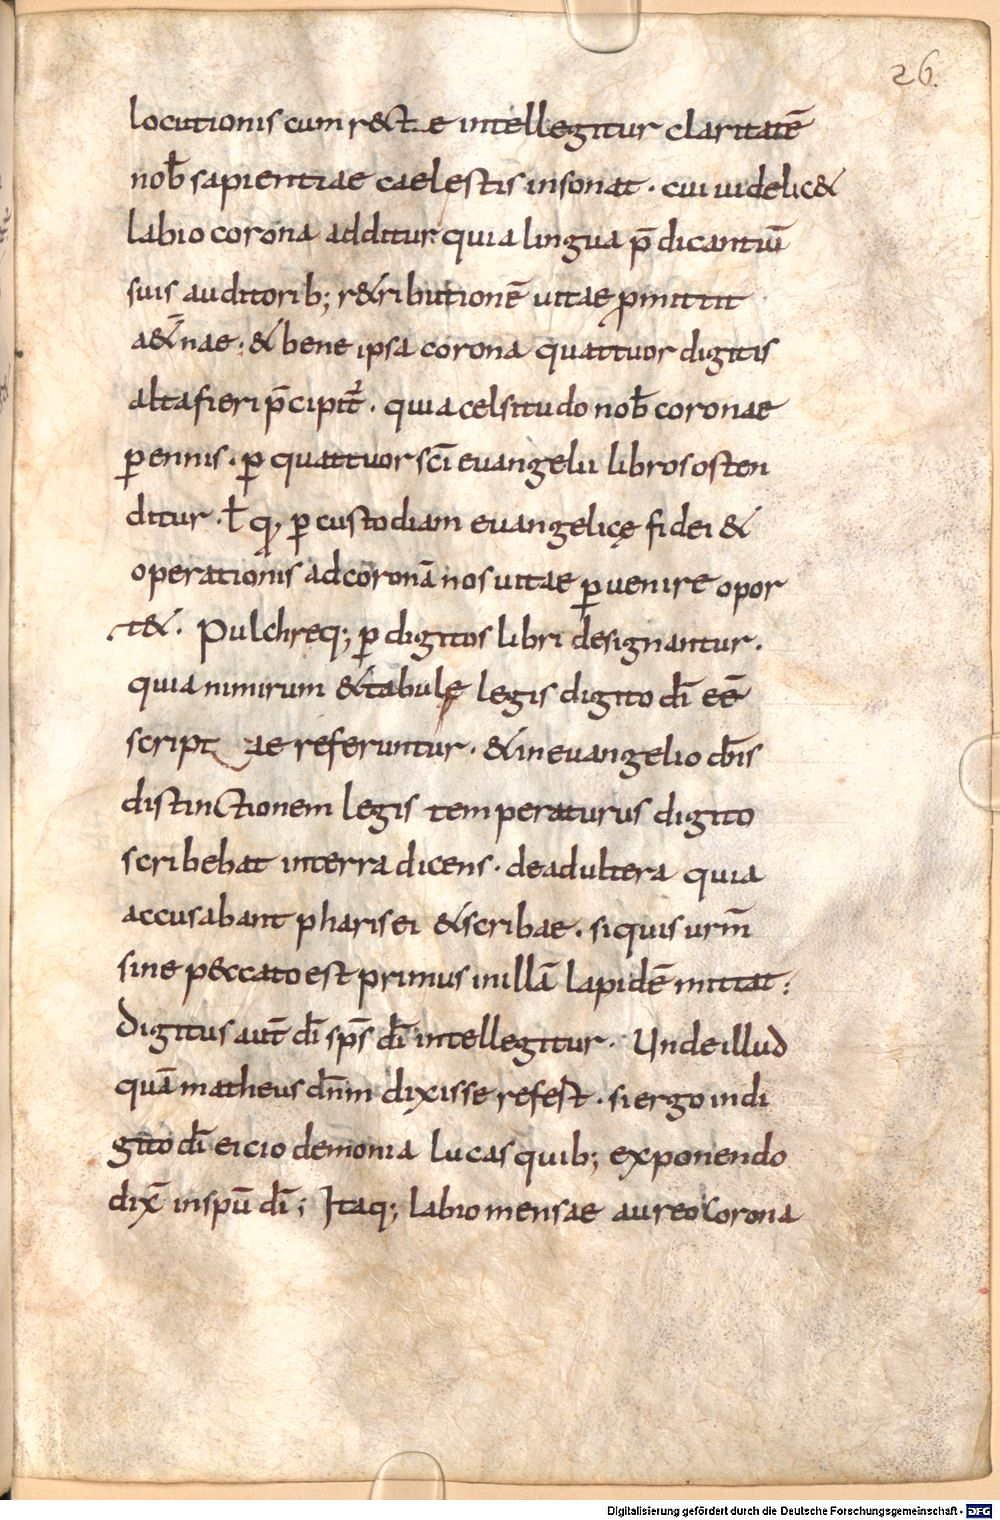 26.
locutionis cum r&ct e intellegitur claritatē
nob̄ sapientiae caelestis insonat · cui uidelic&
labio corona additur quia lingua p̄dicantiū
suis auditorib; r&ributionē uitae ꝓmittit
a&̄nae · & bene ipsa corona quattuor digitis
alta fieri p̄cipit᷑ · quia celsitudo nob̄ coronae
ꝑennis · ꝑ quattuor sc̄i euangelii libros osten
ditur · ł q, ꝑ custodiam euangelicę fidei &
operationis ad coronā nos uitae ꝑuenire opor
t& · Pulchreq; ꝑ digitos libri designantur ·
quia nimirum & tabulę legis digito dī eē
script ae referuntur · & in euangelio dn̄s
distinctionem legis temperaturus digito
scribebat in terra dicens · de adultera quia
accusabant pharisei & scribae · si quis urm̄
sine peccato est primus in illā lapidē mittat :
Digitus aut̄ dī sp̄s dī intellegitur · Unde illud
quā matheus dn̄m dixisse refert · si ergo in di
gito dī eicio demonia lucas quib; exponendo
dix̄ in spū dī ; Itaq; labio mensae aureo corona
Digitalisierung gefördert durch die Deutsche Forschungsgemeinschaft - DFG